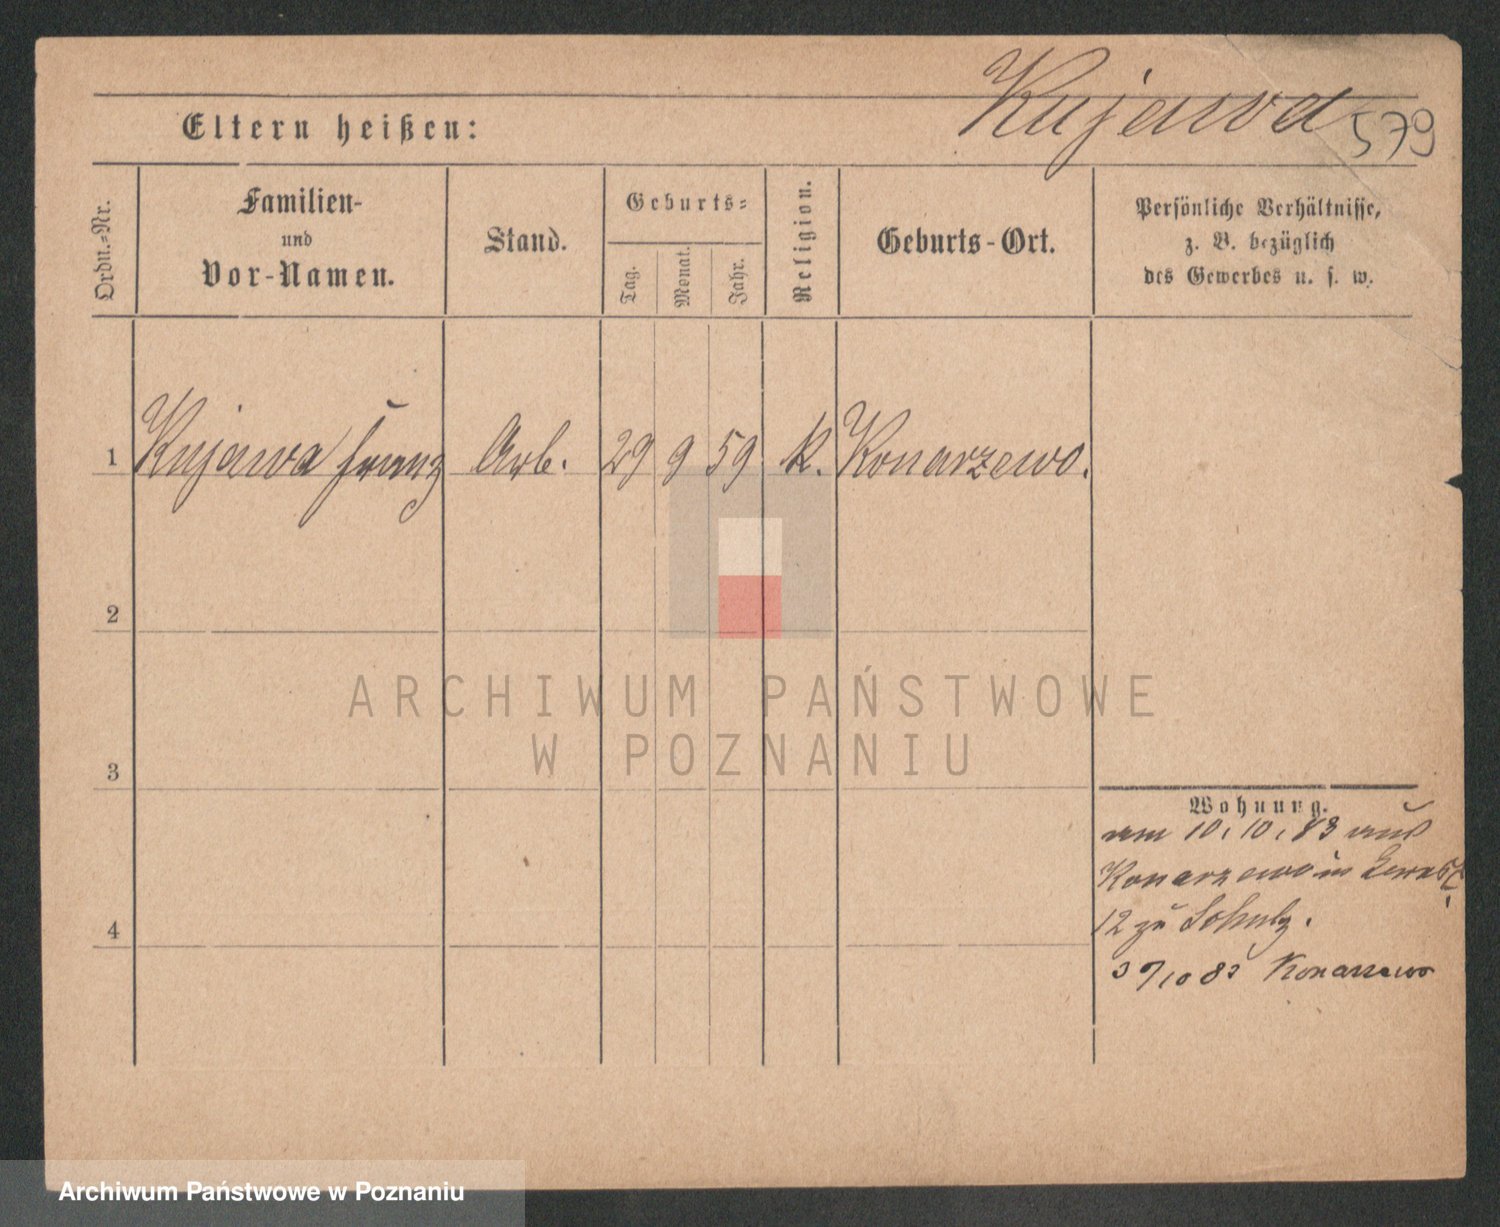 Kujawa
579
Eltern heißen:
Ordn.-Nr.
Familien-
und
Vor-Namen.
Stand.
Geburts-
Tag.
Monat.
Jahr.
Religion.
Geburts-Ort.
Persönliche Verhältnisse,
z. B. bezüglich
des Gewerbes u. s. w.
1 Kujawa Franz Arb. 29 9 59 K. Konarzewo.
2
3
4
Wohnung.
am 10. 10. 83 aus
Konarzewo in
12 zu Schulz.
10 83 Konarzewo
ARCHIWUM PAŃSTWOWE
W POZNANIU
Archiwum Państwowe w Poznaniu